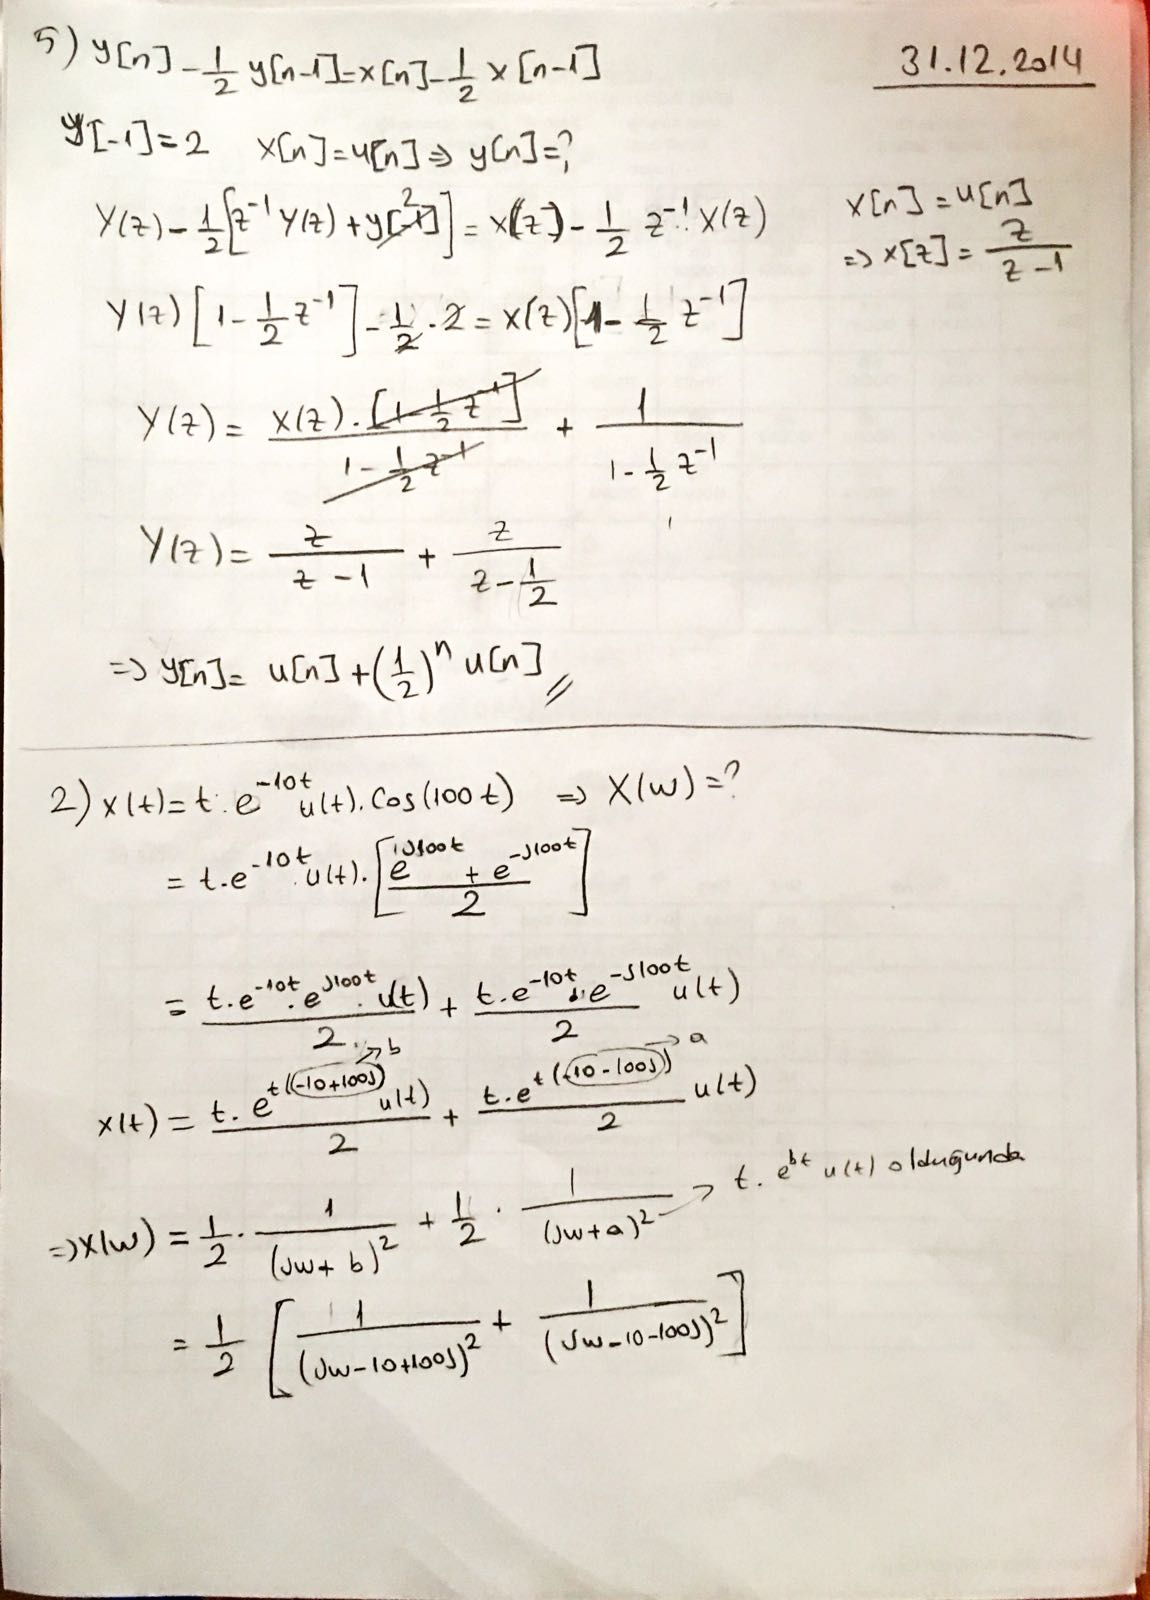 31.12.2014
5) y[n] - 1/2 y[n-1] = x[n] - 1/2 x[n-1]
y[-1] = 2 x[n] = u[n] ⇒ y[n] = ?
Y(z) - 1/2 [z^-1 Y(z) + y[-1] 2] = x[z] - 1/2 z^-1 . X(z)
x[n] = u[n]
⇒ x[z] = z / (z-1)
Y(z) [1 - 1/2 z^-1] - 1/2 . 2 = x(z) [1 - 1/2 z^-1]
Y(z) = x(z) . [1 - 1/2 z^-1] / (1 - 1/2 z^-1) + 1 / (1 - 1/2 z^-1)
Y(z) = z / (z - 1) + z / (z - 1/2)
⇒ y[n] = u[n] + (1/2)^n u[n] //
2) x(t) = t . e^-10t u(t) . Cos(100t) ⇒ X(w) = ?
= t . e^-10t . u(t) . [(e^j100t + e^-j100t) / 2]
= t . e^-10t . e^j100t . u(t) / 2 + t . e^-10t . e^-j100t / 2 u(t)
→ b → a
x(t) = t . e^t((-10+100j)) u(t) / 2 + t . e^t((-10-100j)) / 2 u(t)
⇒ X(w) = 1/2 . 1 / (jw + b)^2 + 1/2 . 1 / (jw + a)^2 → t . e^bt u(t) olduğunda
= 1/2 [1 / (jw - 10 + 100j)^2 + 1 / (jw - 10 - 100j)^2]